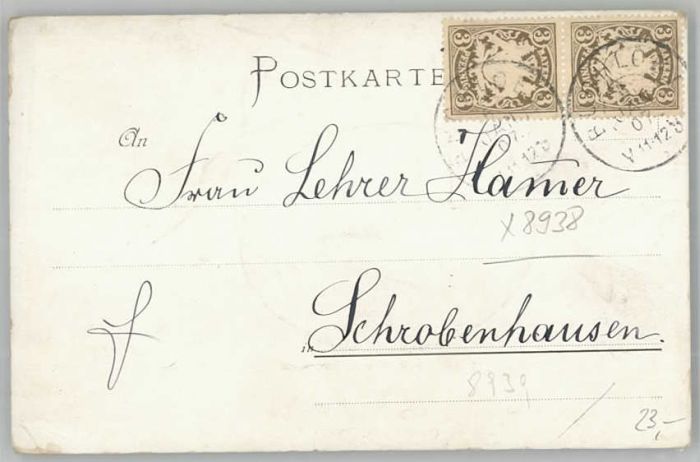 POSTKARTE
3 3 3 3
3 3 3 3
An
Frau Lehrer Hamer
X 8938
in Schrobenhausen.
8939
23,-